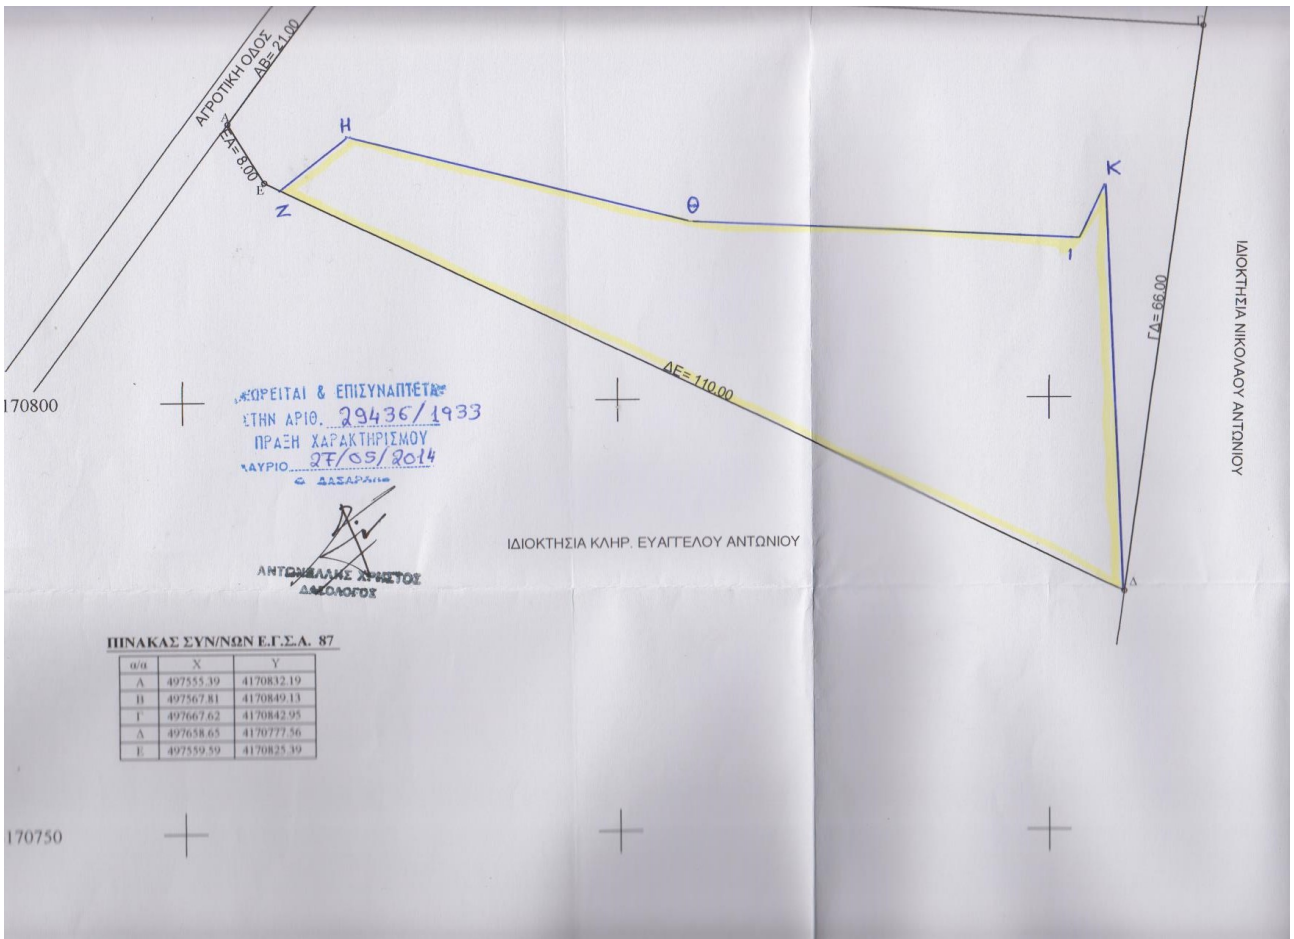 ΑΓΡΟΤΙΚΗ ΟΔΟΣ
ΑΒ= 21.00
Γ
Α
ΕΑ= 8.00
Ε
Ζ
Η
Θ
Ι
Κ
ΓΔ= 66.00
ΙΔΙΟΚΤΗΣΙΑ ΝΙΚΟΛΑΟΥ ΑΝΤΩΝΙΟΥ
ΔΕ= 110.00
170800
ΘΕΩΡΕΙΤΑΙ & ΕΠΙΣΥΝΑΠΤΕΤΑΙ
ΣΤΗΝ ΑΡΙΘ. 29436/1933
ΠΡΑΞΗ ΧΑΡΑΚΤΗΡΙΣΜΟΥ
ΛΑΥΡΙΟ 27/05/2014
Ο ΔΑΣΑΡΧΗΣ
ΑΝΤΩΝΕΛΛΗΣ ΧΡΗΣΤΟΣ
ΔΑΣΟΛΟΓΟΣ
ΙΔΙΟΚΤΗΣΙΑ ΚΛΗΡ. ΕΥΑΓΓΕΛΟΥ ΑΝΤΩΝΙΟΥ
Δ
ΠΙΝΑΚΑΣ ΣΥΝ/ΝΩΝ Ε.Γ.Σ.Α. 87
α/α Χ Υ
Α 497555.39 4170832.19
Β 497567.81 4170849.13
Γ 497667.62 4170842.95
Δ 497658.65 4170777.56
Ε 497559.59 4170825.39
170750